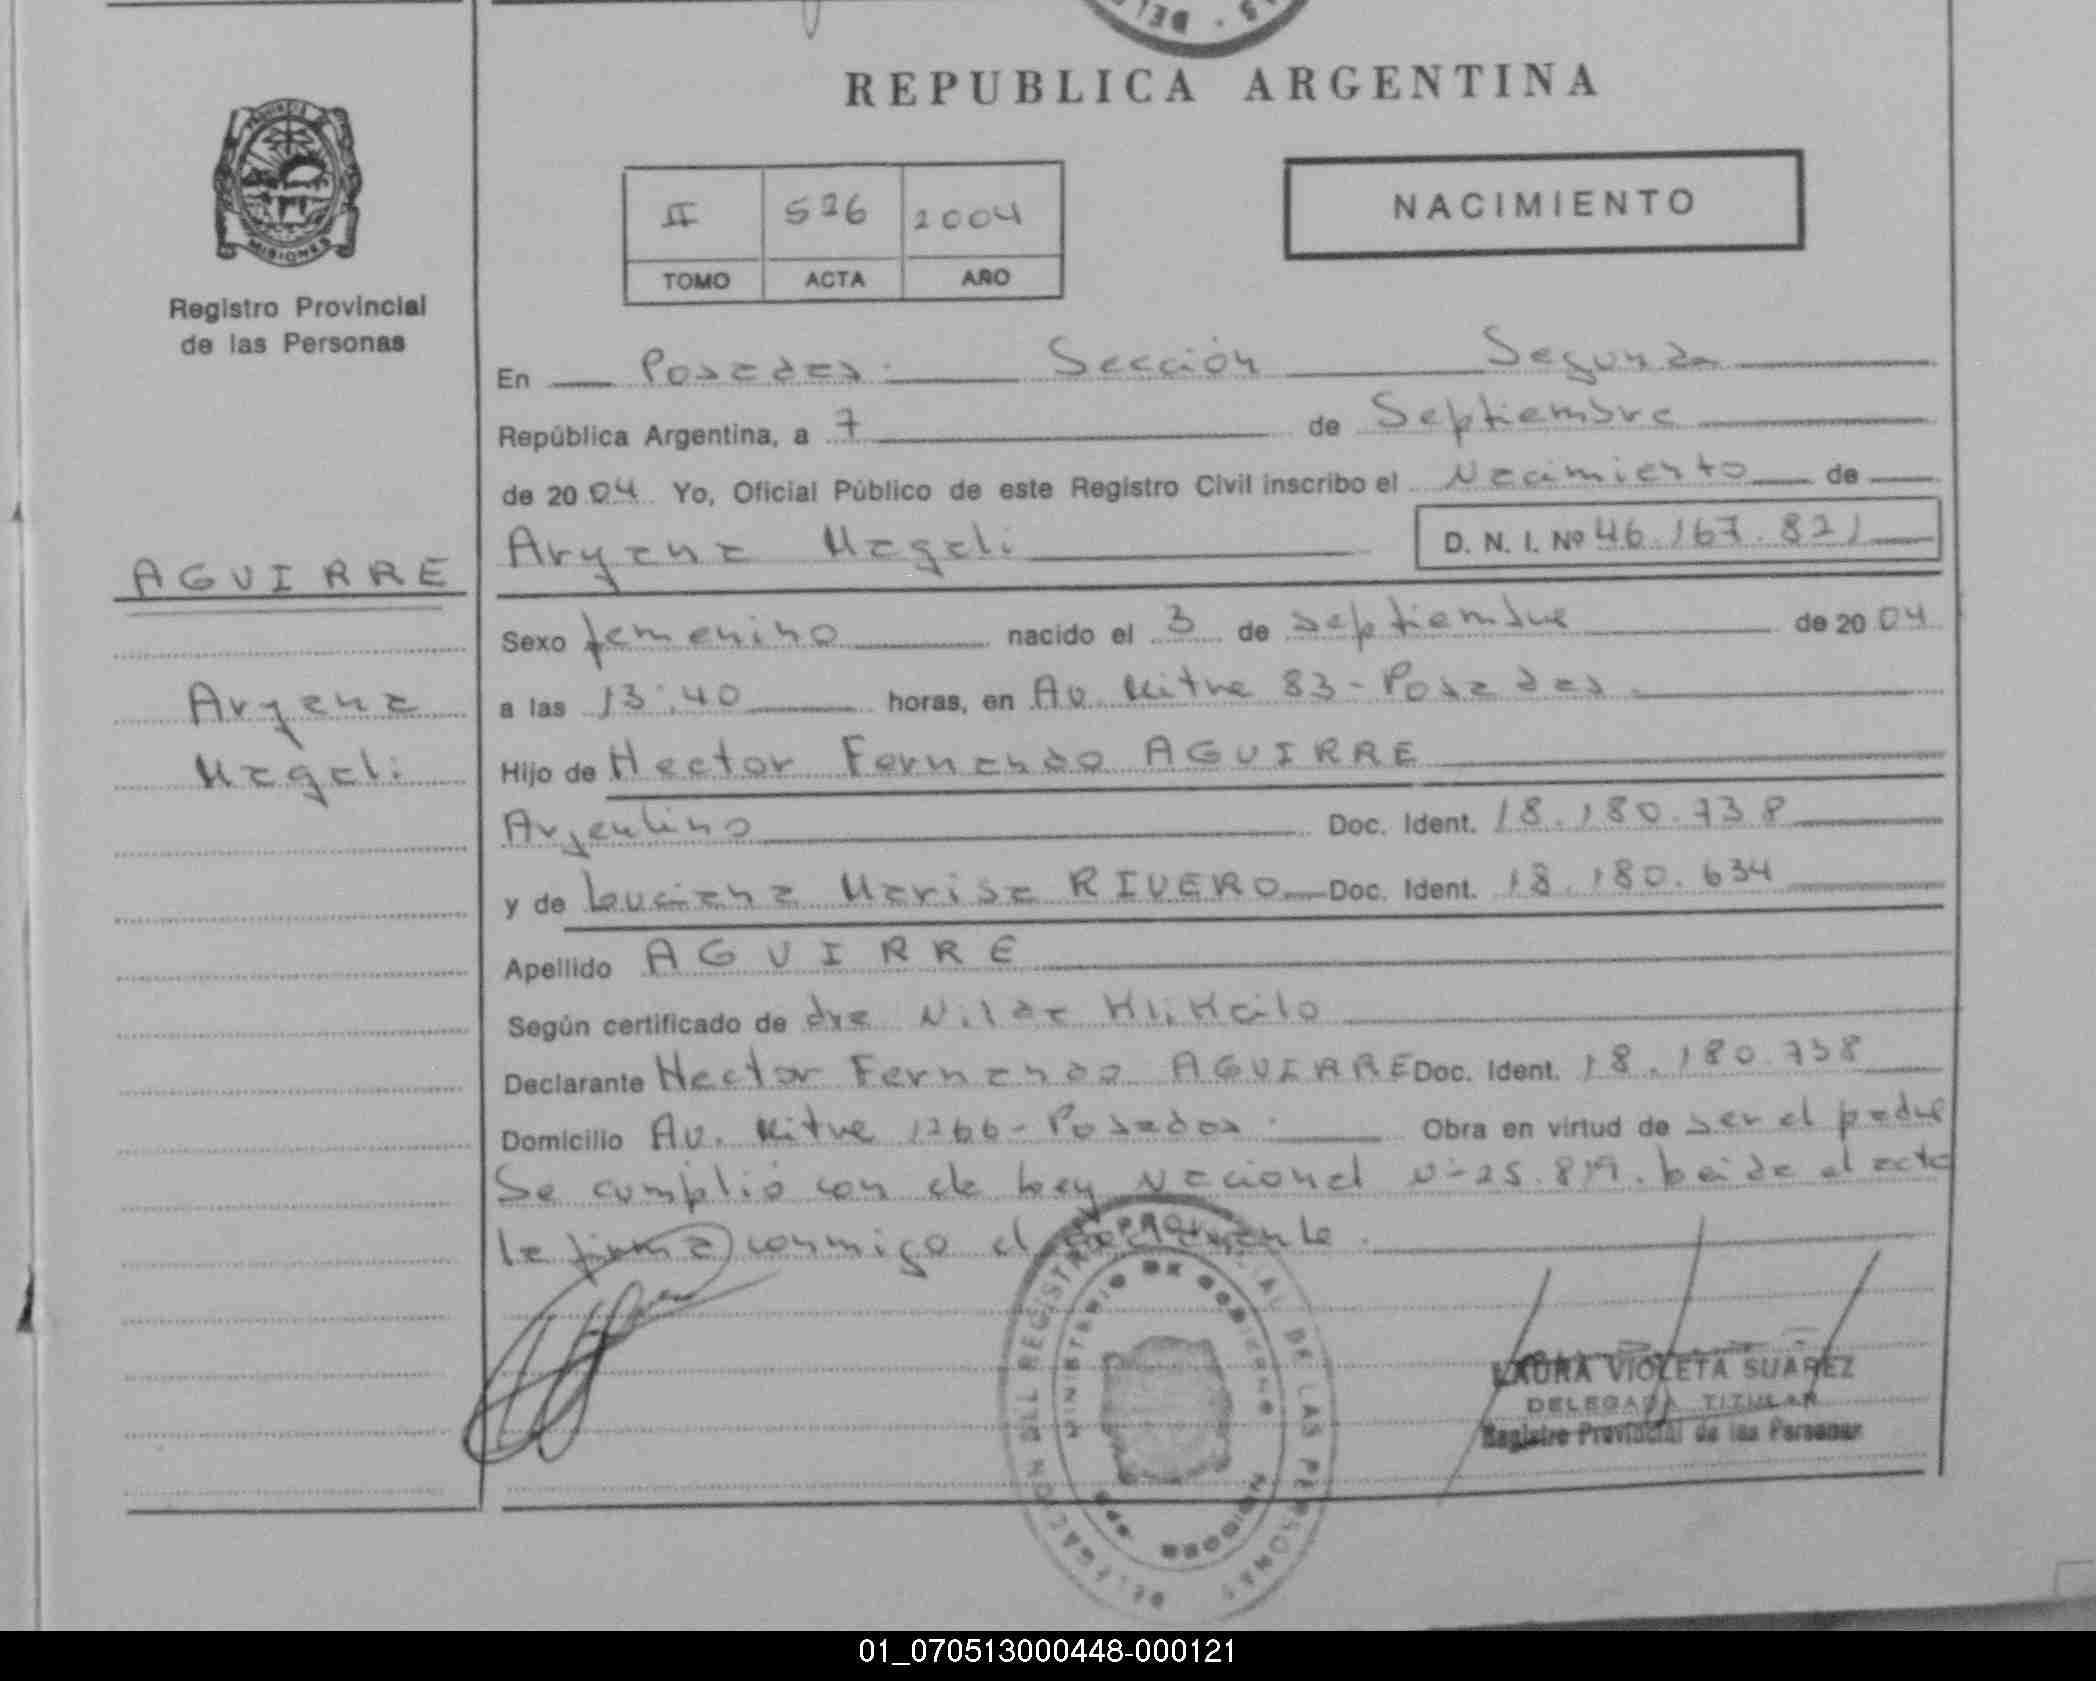 REPUBLICA ARGENTINA
PROVINCIA DE
MISIONES
Registro Provincial
de las Personas
II 526 2004
TOMO ACTA AÑO
NACIMIENTO
En Posadas. Sección Segunda
República Argentina, a 7 de Septiembre
de 2004 Yo, Oficial Público de este Registro Civil inscribo el Nacimiento de
Aryana Magali D. N. I. Nº 46.167.821
AGUIRRE
Aryana
Magali
Sexo femenino nacido el 3 de septiembre de 2004
a las 13:40 horas, en Av. Mitre 83 - Posadas.
Hijo de Hector Fernando AGUIRRE
Argentino Doc. Ident. 18.180.738
y de Luciana Marisa RIVERO Doc. Ident. 18.180.634
Apellido AGUIRRE
Según certificado de dra Nilda
Declarante Hector Fernando AGUIRRE Doc. Ident. 18.180.738
Domicilio Av. Mitre 1266 - Posadas. Obra en virtud de ser el padre
Se cumplió con la Ley Nacional Nº 25.819. Leida el acta
la firma conmigo el declarante.
DELEGACION DEL REGISTRO PROVINCIAL DE LAS PERSONAS
MINISTERIO DE GOBIERNO
LAURA VIOLETA SUAREZ
DELEGADA TITULAR
Registro Provincial de las Personas
01_070513000448-000121